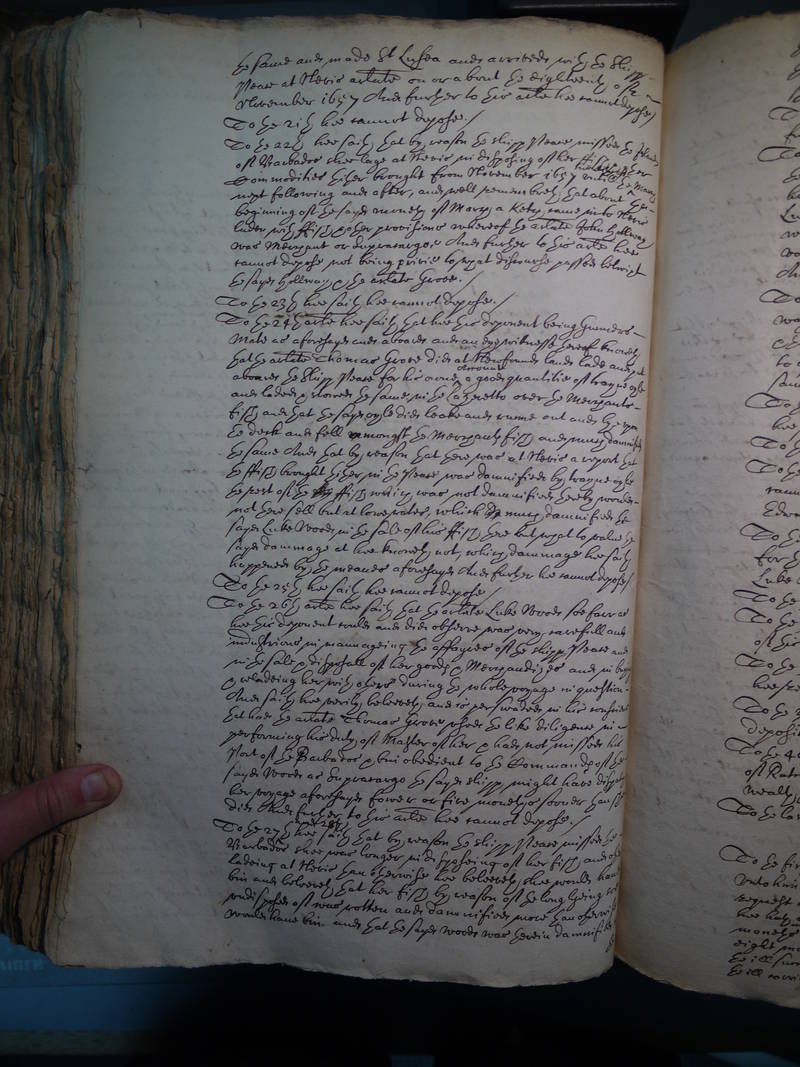 the same and made St Lucea and arrived with the shipp
Peace at Nevis arlate on or about the eighteenth of
November 1657 And further to this arte hee cannot depose/
To the 21th hee cannot depose./
To the 22th hee saith that by reason the shipp Peace missed the Island
of Barbados shee laye at Nevis in disposing of her ffish and other
Commodities thither brought from November 1657 untill the of May
next following and after, and well remembreth that about the
beginning of the sayd moneth of May a Ketch came into Nevis
laden with ffish and other provisions whereof the arlate John Hollway
was Merchant or Supracargo, And further to this arte hee
cannot depose not being privie to what discourse passed betwixt
the sayd Hollway & the arlate Grove./
To the 23th hee saith hee cannot depose./
To the 24th arte hee saith that hee this deponent being Gunners
Mate as aforesayd and aboard and an eye witnesse thereof knoweth
that the arlate Thomas Grove did at Newfound land lade and put
aboard the shipp Peace for his owne account a good quantitie of trayne oyle
and laded & stowed the same in the Lazeretto over the Merchants
fish and that the sayd oyle did leake and runne out and by upon
the deck and fell amongst the Merchants fish and much damnified
the same And that by reason that there was at Nevis a report that
the ffish brought thither in the Peace was damnified by trayne oyle
the rest of the ffish which was not damnified thereby would
not there sell but at lowe rates, which much damnified the
sayd Luke Woods in the sale of his ffish there but what to value the
sayd dammage at hee knoweth not, which dammage hee saith
happened by the meanes aforesayd And further hee cannot depose/
To the 25th hee saith hee cannot depose/
To the 26th arte hee saith that the arlate Luke Woods soe farr as
hee this deponent could and did observe was very carefull and
industrious in manageing the affayres of the shipp Peace and
in the sale & disposall of her goods & Merchandizes and in buying
& reladeing her with others during the whole voyage in question
And saith hee verily beleeveth and is perswaded in his conscience
that had the arlate Thomas Grove used the like diligence in
performing his duty of Master of her & had not missed his
Port of the Barbados & bin obedient to the Commands of the
sayd Woods as Supracargo the sayd shipp might have dispatcht
her voyage aforesayd fower or five moneths sooner than shee
did And further to this arte hee cannot depose./
To the 27th and 28th hee saith that by reason the shipp Peace missed the
Barbados shee was longer in disposeing of her fish and other
ladeing at Nevis than otherwise hee beleeveth shee would have
bin and beleeveth that her fish by reason of the long lyeing
undisposed of was rotten and damnified more than otherwise
would have bin and that the sayd Woods was therein damnified